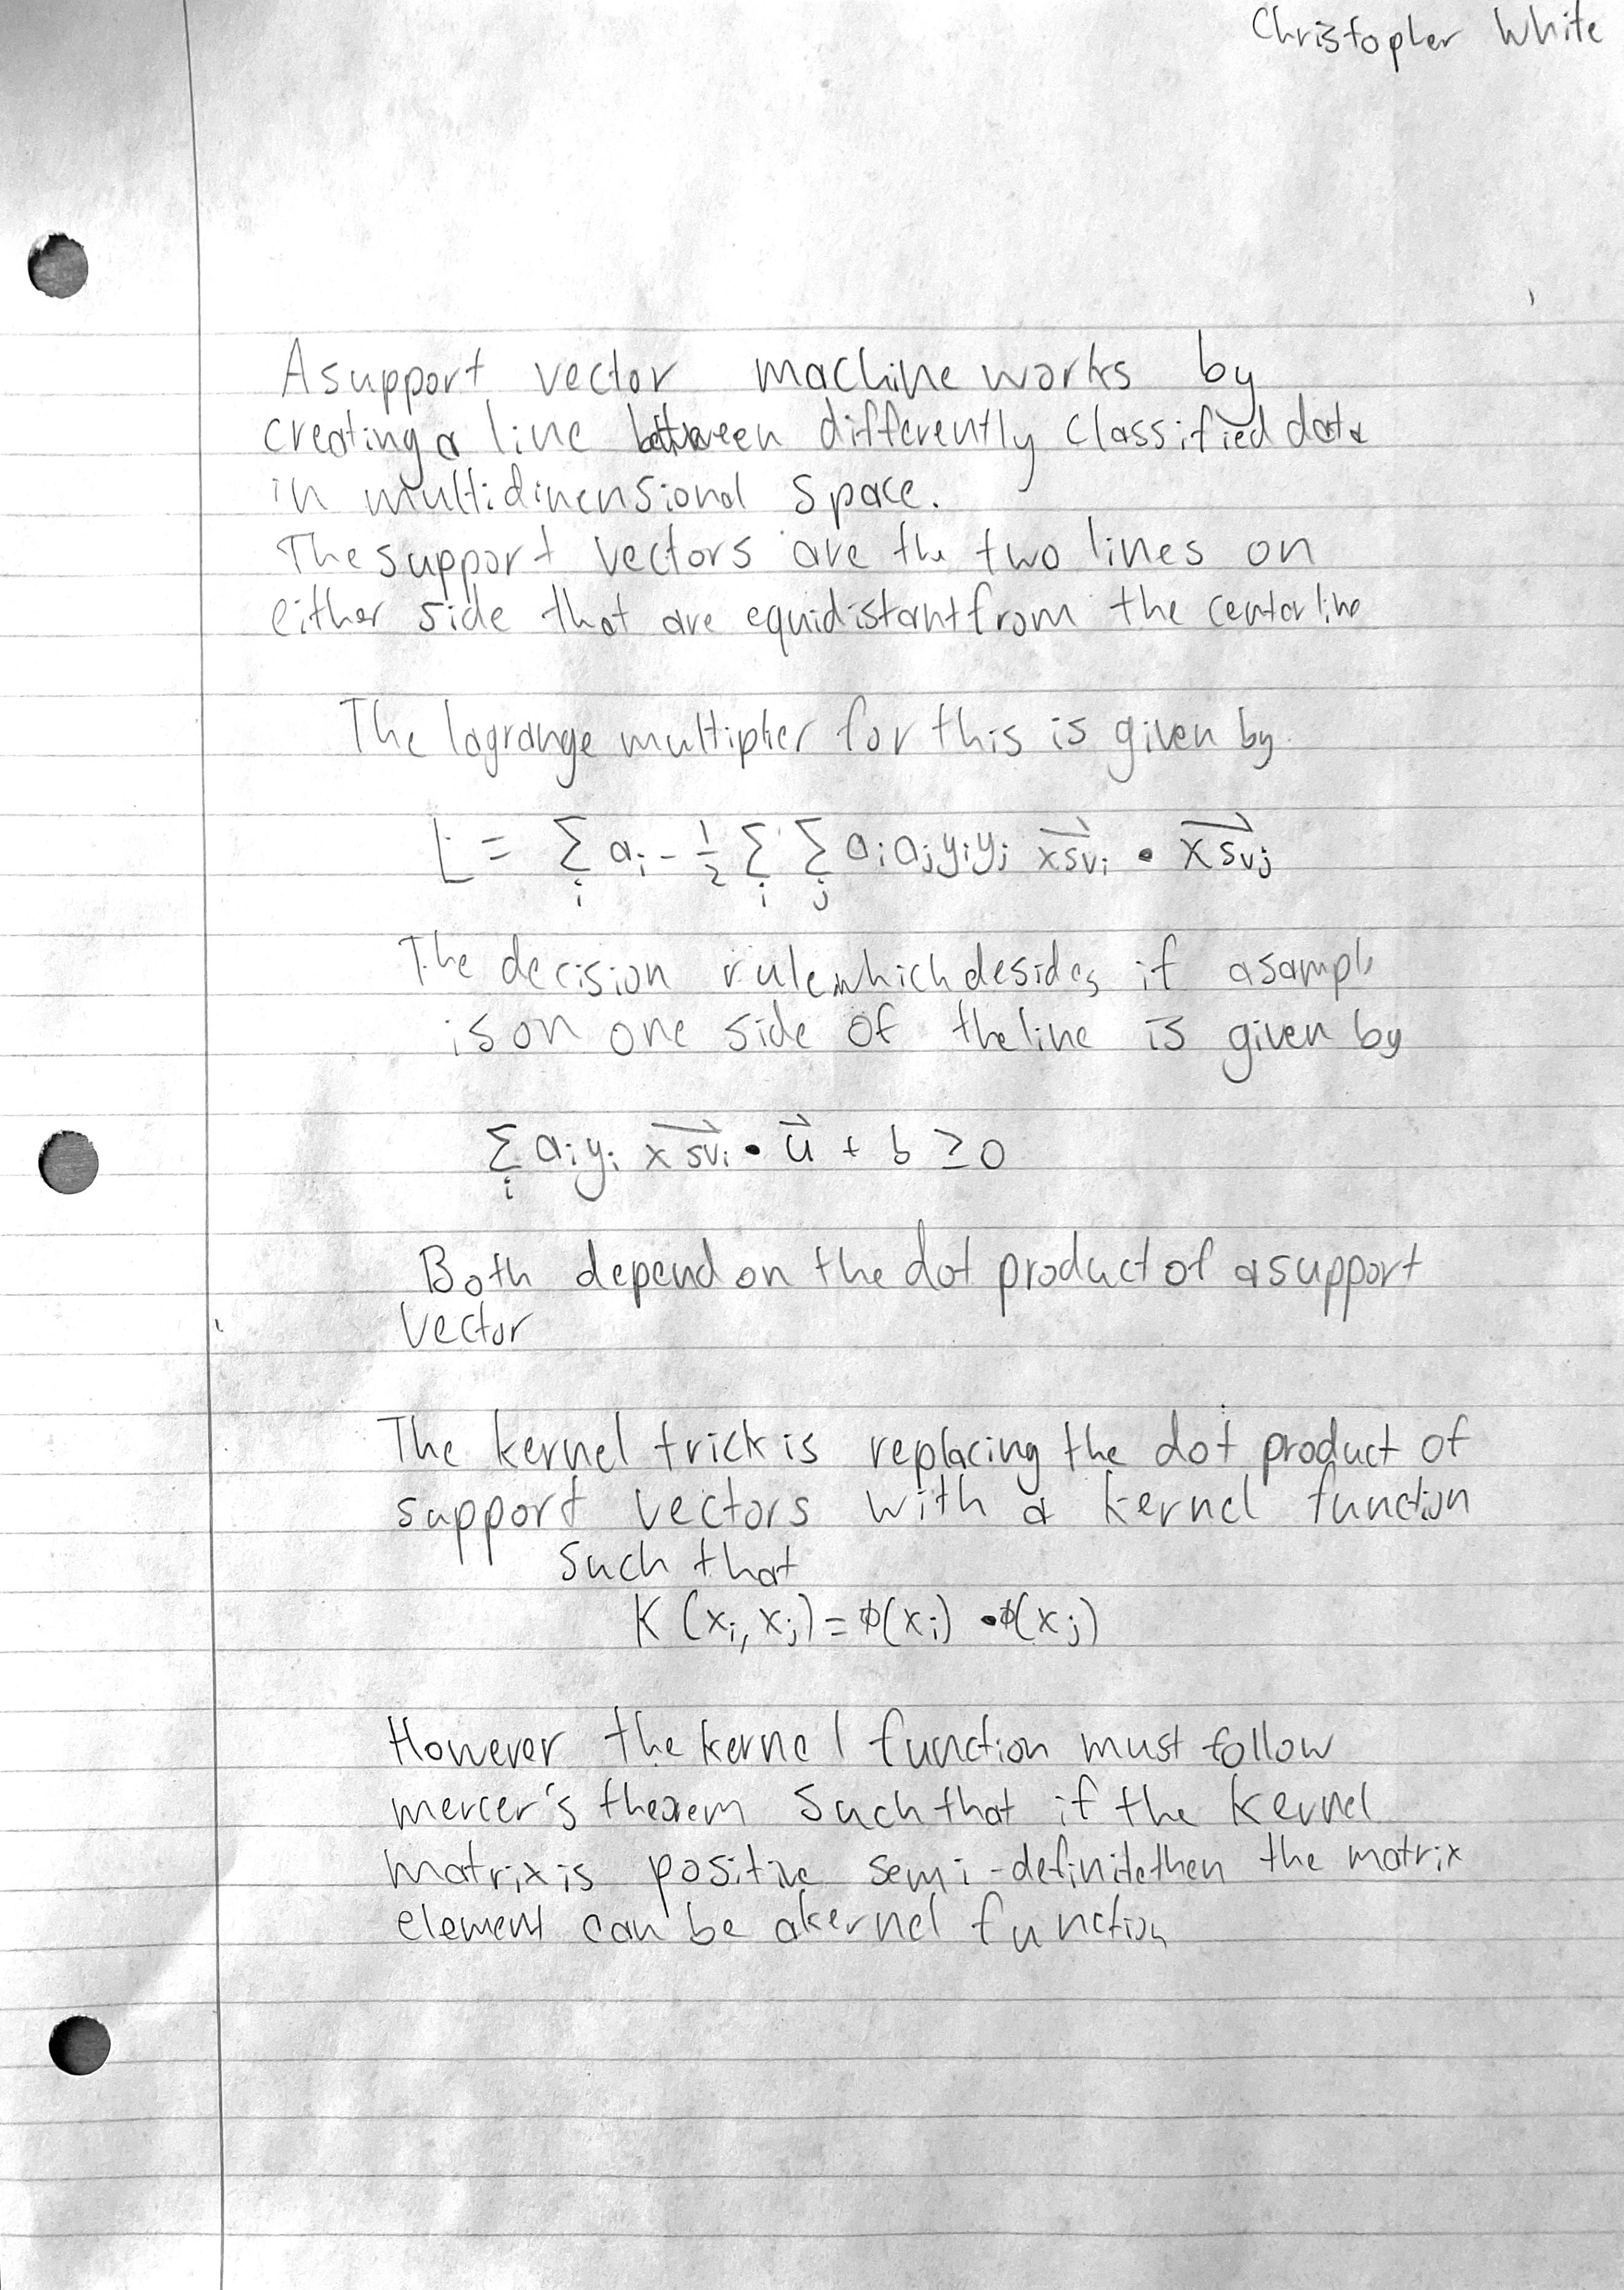 Christopher White
A support vector machine works by
creating a line between differently classified data
in multidimensional space.
The support vectors are the two lines on
either side that are equidistant from the center line
The lagrange multiplier for this is given by
L = ∑_i a_i - 1/2 ∑_i ∑_j a_i a_j y_i y_j \vec{xsv_i} • \vec{xsv_j}
The decision rule which desides if a sample
is on one side of the line is given by
∑_i a_i y_i \vec{xsv_i} • \vec{u} + b ≥ 0
Both depend on the dot product of a support
vector
The kernel trick is replacing the dot product of
support vectors with a kernel function
such that
K(x_i, x_j) = Φ(x_i) • Φ(x_j)
However the kernel function must follow
mercer's theorem such that if the kernel
matrix is positive semi-definite then the matrix
element can be a kernel function